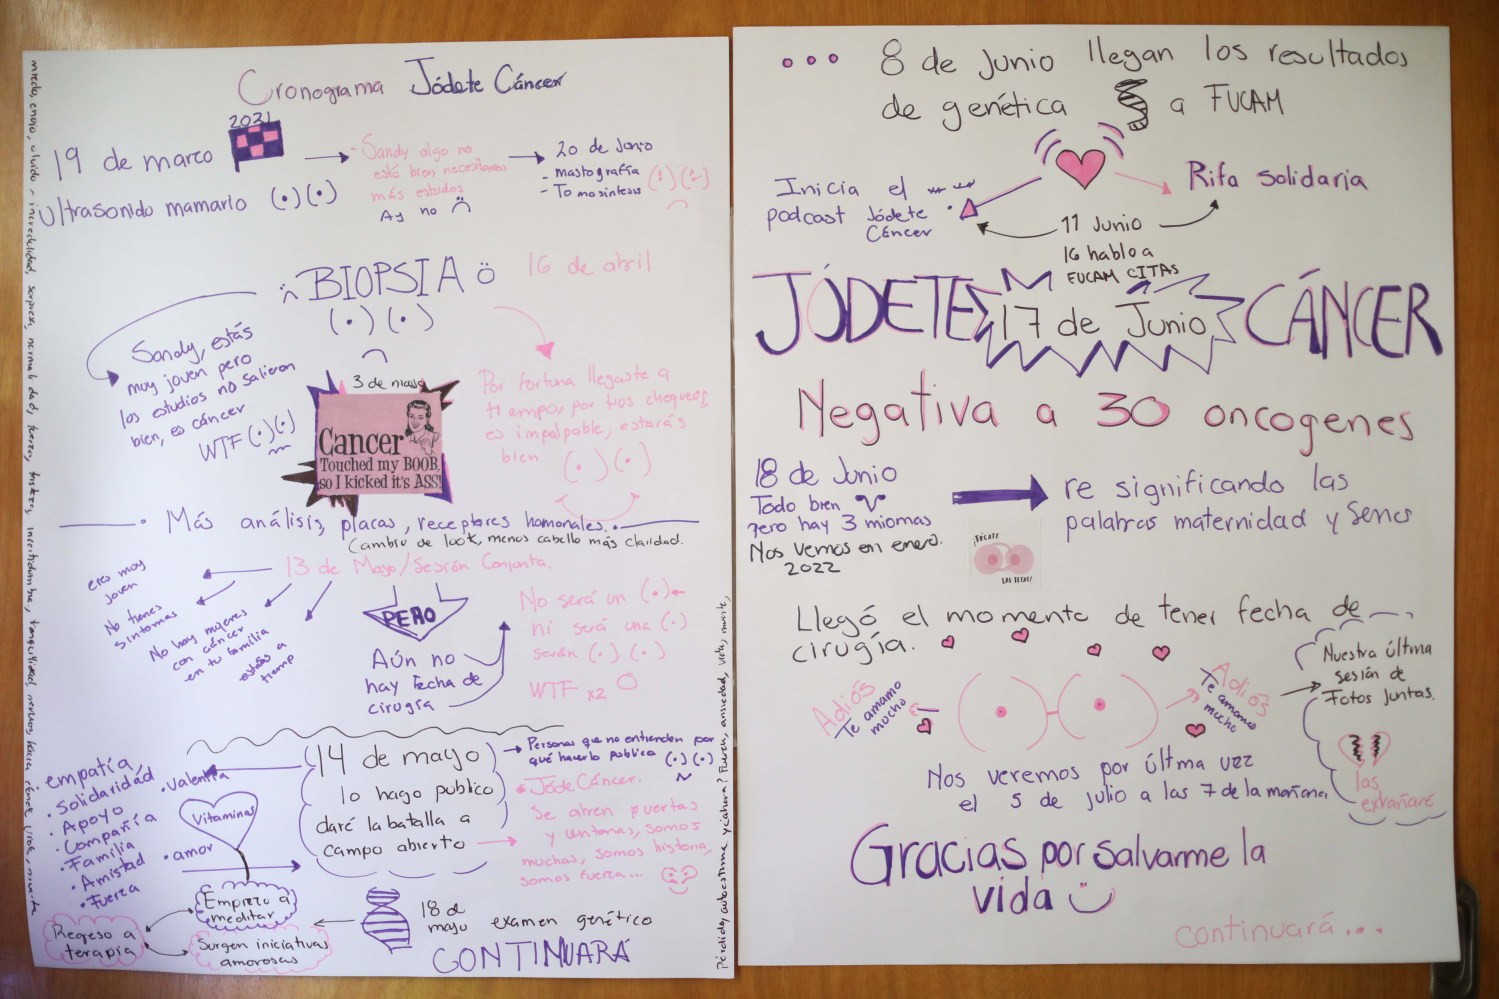 Cronograma Jódete Cáncer
2021
19 de marzo
ultrasonido mamario (•)(•)
- Sandy algo no
está bien necesitamos
más estudios
Ay no
20 de Junio
- mastografía
- Tomosintesis
BIOPSIA
16 de abril
(•)(•)
Sandy, estás
muy joven pero
los estudios no salieron
bien, es cáncer
WTF (•)(•)
3 de mayo
Cancer
Touched my BOOB,
so I kicked it's ASS!
Por fortuna llegaste a
tiempo, por tus chequeos
es impalpable, estarás
bien
(•)(•)
Más análisis, placas, receptores hormonales.
Cambio de look, menos cabello más claridad.
13 de Mayo/Sesión Conjunta.
eres muy
joven
No tienes
síntomas
No hay mujeres
con cáncer
en tu familia
estás a
tiemp
PERO
Aún no
hay fecha de
cirugía
No será un (•)
ni será una (•)
serán (•)(•)
WTF x2
14 de mayo
lo hago publico
daré la batalla a
campo abierto
Personas que no entienden por
qué hacerlo publico (•)(•)
JódeCáncer.
Se abren puertas
y ventanas, somos
muchas, somos historia,
somos fuerza...
empatía
• Solidaridad
• Apoyo
• Compañía
• Familia
• Amistad
• Fuerza
• Valentía
Vitaminas
• amor
Empiezo a
meditar
Regreso a
terapia
Surgen iniciativas
amorosas
18 de
mayo
examen genético
CONTINUARÁ
miedo, enojo,
incredulidad, sorpresa, normalidad, fuerza, tristeza, incertidumbre, tranquilidad,
Pérdidas, autoestima, y cáncer?
ansiedad, vida, muerte,
8 de Junio llegan los resultados
de genética a FUCAM
Inicia el
podcast Jódete
Cáncer
Rifa solidaria
11 Junio
16 hablo a
FUCAM CITAS
JÓDETE 17 de Junio CÁNCER
Negativa a 30 oncogenes
18 de Junio
Todo bien
pero hay 3 miomas
Nos vemos en enero.
2022
re significando las
palabras maternidad y senos
¡TÓCATE
LAS TETAS!
Llegó el momento de tener fecha de
cirugía.
Adiós
Te amamo
mucho
Adiós
Te amamos
mucho
Nuestra última
sesión de
Fotos Juntas.
las
extrañaré
Nos veremos por última vez
el 5 de julio a las 7 de la mañana
Gracias por salvarme la
vida
continuará...